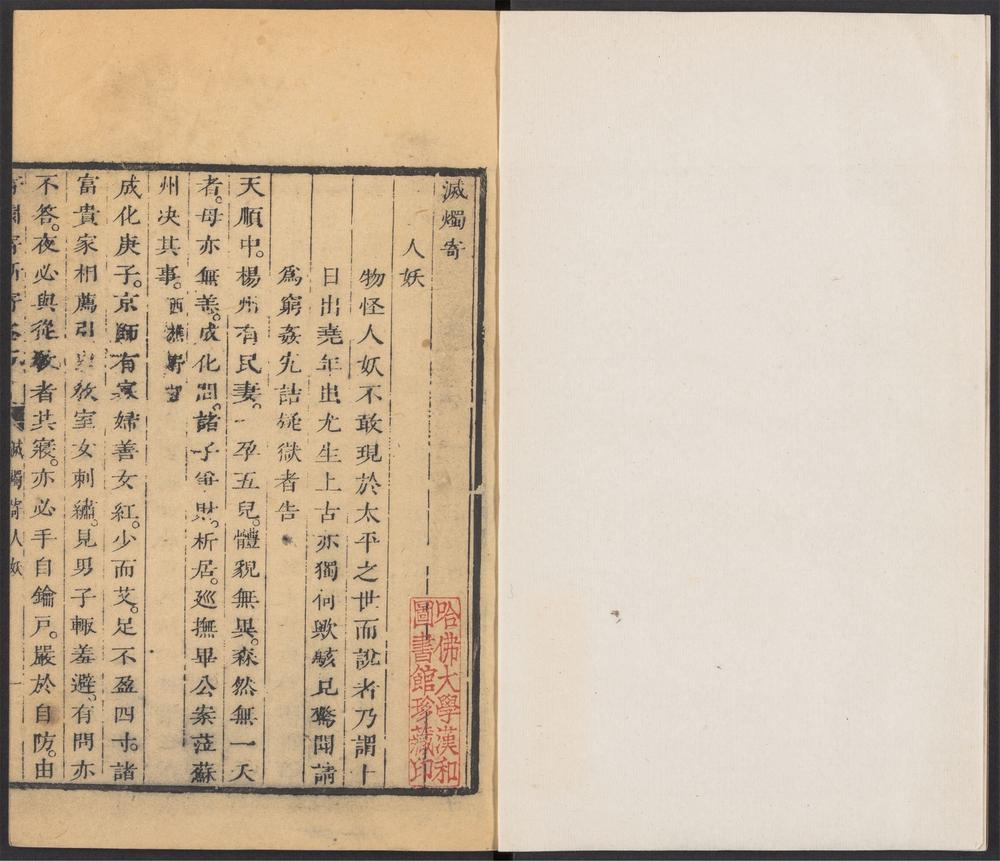 滅燭寄
人妖
物怪人妖不敢現於太平之世而說者乃謂十
日出堯年蚩尤生上古亦獨何歟駭見驚聞請
爲窮姦先詰疑獄者告
天順中。楊州有民妻。一孕五兒。體貌無異。森然無一夭
者。母亦無恙。成化間。諸子爭財。析居。廵撫畢公案蒞蘇
州决其事。西樵野
成化庚子。京師有寡婦善女紅。少而艾。足不盈四寸。諸
富貴家相薦引以教室女刺繡。見男子輙羞避。有問亦
不答。夜必與從教者共寢。亦必手自鑰戶。嚴於自防。由
滅燭寄人妖 一
哈佛大學漢和
圖書館珍藏印